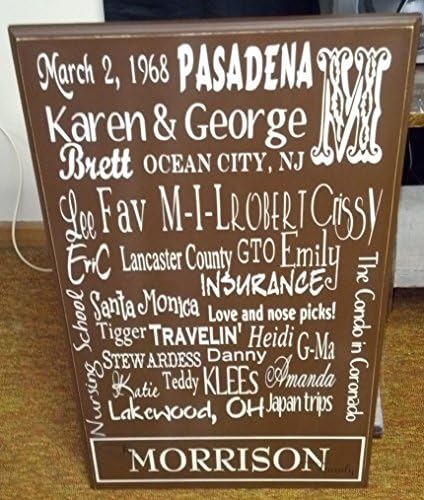 March 2, 1968 PASADENA M
Karen & George
Brett OCEAN CITY, NJ
Lee Fav M-I-L ROBERT Crissy
EriC Lancaster County GTO Emily
INSURANCE
Santa Monica Love and nose picks!
Tigger TRAVELIN' Heidi G-Ma
STEWARDESS Danny
Katie Teddy KLEES Amanda
Lakewood, OH Japan trips
Nursing School
The Condo in Coronado
MORRISON